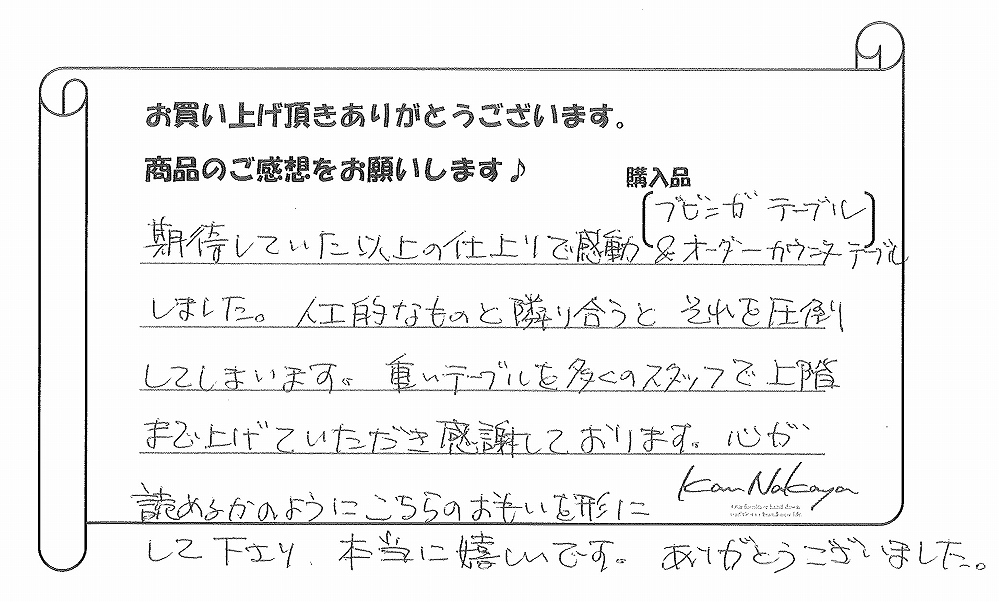 お買い上げ頂きありがとうございます。
商品のご感想をお願いします♪
購入品
ブビンガ テーブル
&オーダーカウンターテーブル
期待していた以上の仕上りで感動
しました。人工的なものと隣り合うと それを圧倒
してしまいます。重いテーブルを多くのスタッフで上階
まで上げていただき感謝しております。心が
読めるかのようにこちらのおもいを形に
Kan Nakaya
して下さり、本当に嬉しいです。ありがとうございました。